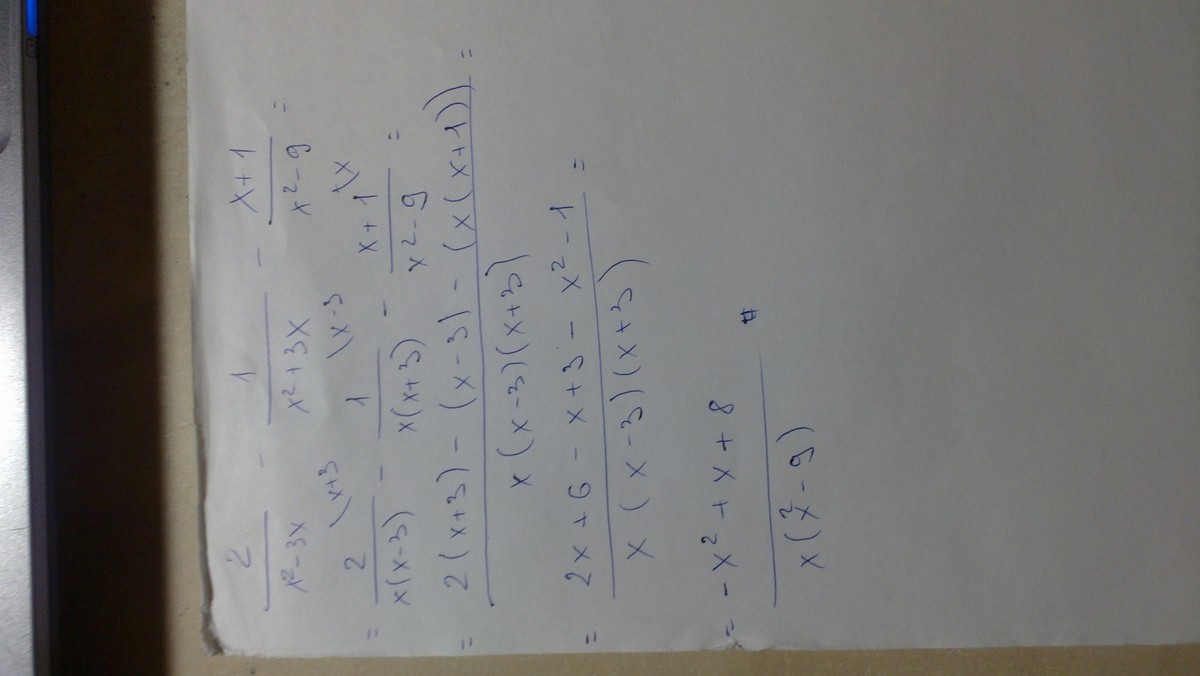 2/(x²-3x) - 1/(x²+3x) - (x+1)/(x²-9) =
= 2/(x(x-3)) \x+3 - 1/(x(x+3)) \x-3 - (x+1)/(x²-9) \x =
= (2(x+3) - (x-3) - (x(x+1)))/(x(x-3)(x+3)) =
= (2x+6-x+3-x²-1)/(x(x-3)(x+3)) =
= (-x²+x+8)/(x(x²-9)) #